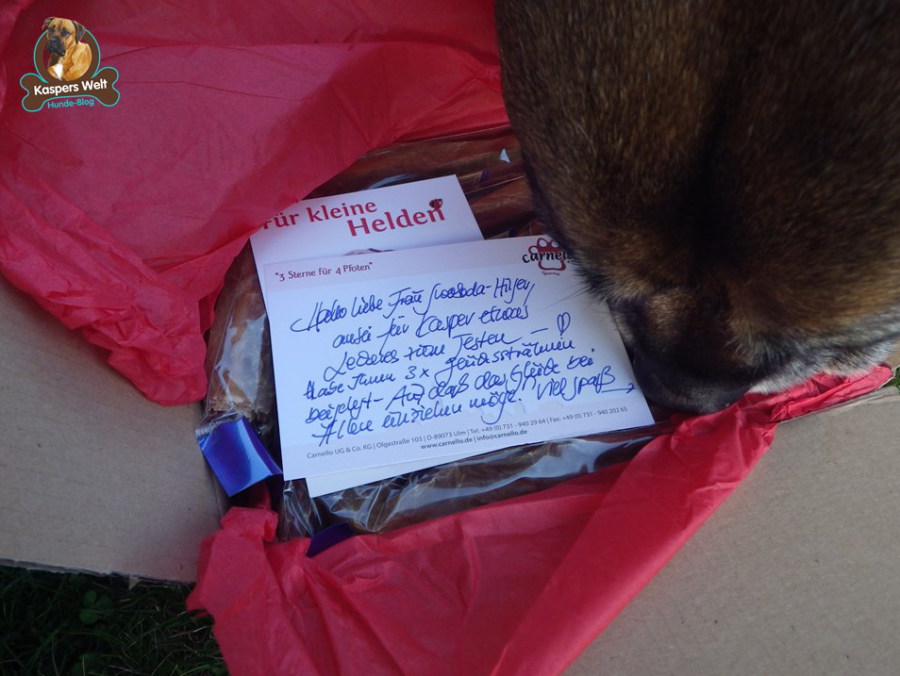 Kaspers Welt
Hunde-Blog
für kleine
Helden
carnello
"3 Sterne für 4 Pfoten"
Hallo liebe Frau
für Kasper etwas
Leckeres zum Testen –
Habe Ihnen 3x
beigelegt – Auf daß das Glück bei
Allen einziehen möge! Viel Spaß
Carnello UG & Co. KG | Olgastraße 105 | D-89073 Ulm | Tel: +49 (0) 731 - 940 29 64 | Fax: +49 (0) 731 - 940 202 65
www.carnello.de | info@carnello.de